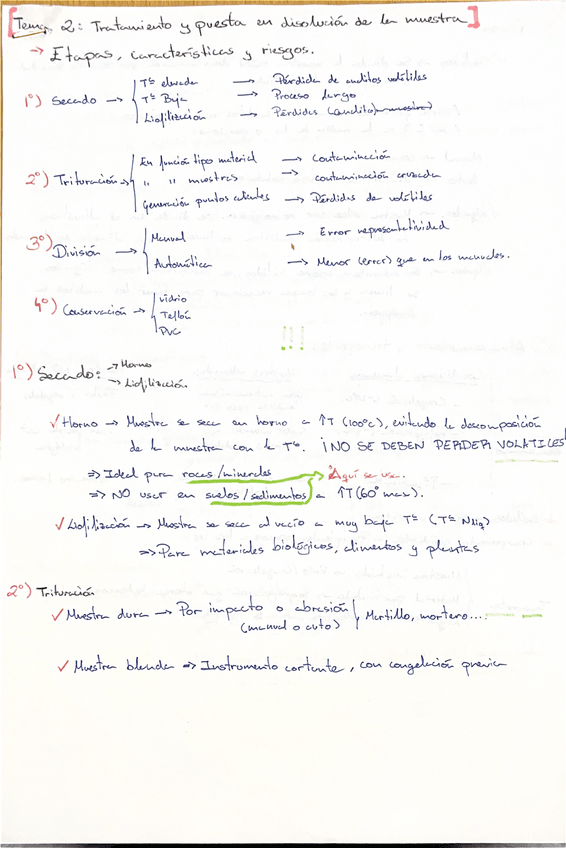 [Tema 2: Tratamiento y puesta en disolución de la muestra]
→ Etapas, características y riesgos.
1º) Secado → Tª elevada → Pérdida de analitos volátiles
Tª Baja → Proceso largo
Liofilización → Pérdidas (analito, muestra)
2º) Trituración → En función tipo material → Contaminación
" " muestras → contaminación cruzada
Generación puntos calientes → Pérdidas de volátiles
3º) División → Manual → Error representatividad
Automática → Menor (error) que en los manuales.
4º) Conservación → Vidrio
Teflón
PVC
!!!
1º) Secado: → Horno
→ Liofilización.
✓ Horno → Muestra se seca en horno a ↑T (100ºC), evitando la descomposición
de la muestra con la Tª. ¡NO SE DEBEN PERDER VOLATILES!
⇒ Ideal para rocas/minerales → Aquí se usa.
⇒ NO usar en suelos/sedimentos a ↑T (60º max).
✓ Liofilización → Muestra se seca al vacío a muy baja Tª (Tª N liq)
⇒ Para materiales biológicos, alimentos y plantas
2º) Trituración
✓ Muestra dura → Por impacto o abrasión Martillo, mortero...
(manual o auto)
✓ Muestra blanda ⇒ Instrumento cortante, con congelación previa